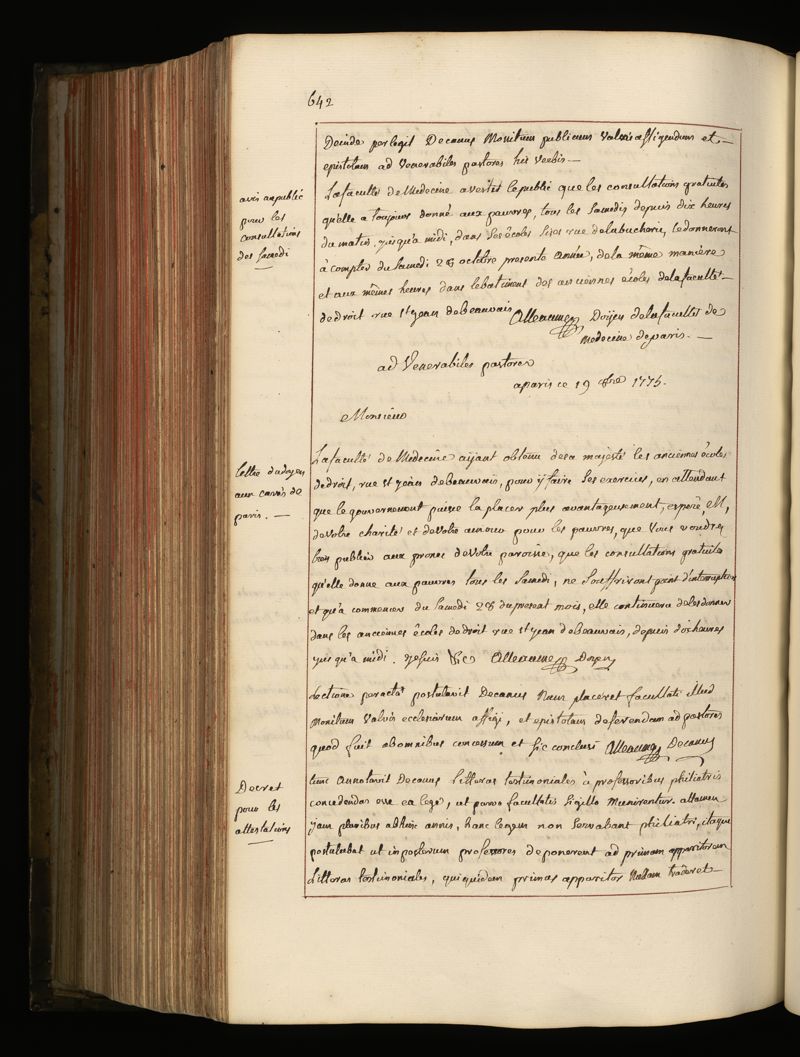 642
Deinde perlegit Decanus Monitum publicum Valvis affigendum et
epistolam ad Venerabiles pastores his verbis
avis au publié
pour les
consultations
des samedi
La faculté de Medecine avertit le publié que les consultations gratuites
qu'elle a toujours donné aux pauvres, tous les Samedis depuis dix heures
du matin, jusqu'à midi, dans ses écoles sises rue de la bucherie, se donneront
à compter du Samedi 28 octobre presente année, de la même manière
et aux mêmes heures dans le batiment des anciennes écoles de la faculté
de droit rue st jean de beauvais Alleaume Doÿen de la faculté de
Medecine de paris.
ad Venerabiles pastores
a paris ce 19 8bre 1775.
Monsieur
lettre du doyen
aux curés de
paris.
La faculté de Medecine aÿant obtenu de sa majesté les anciennes écoles
de droit, rue st jean de beauvais, pour ÿ faire ses exercices, en attendant
que le gouvernement puisse la placer plus avantageusement, espere, M,
de votre charité et de votre amour pour les pauvres, que vous voudrez
bien publier aux prones de votre paroisse, que les consultations gratuites
qu'elle donne aux pauvres tous les Samedi, ne souffriront point d'interruption
et qu'à commencer du Samedi 28 du present mois, elle continuera de les donner
dans les anciennes écoles de droit rue st jean de beauvais, depuis dix heures
jusqu'à midi. Je suis &c Alleaume Doyen
Lectione peracta postulavit Decanus Num placeret facultati illud
Monitum Valvis ecclesiarum affigi, et epistolam deferendam ad pastores
quod fuit ab omnibus concessum et sic conclusi Alleaume Decanus
Decret
pour les
attestations
tunc annotavit Decanus litteras testimoniales à professoribus philiatris
concedendas esse ea lege, ut parvo facultatis sigillo Munirentur attamen
jam pluribus abhinc annis, hanc legem non servabant philiatri, itaque
postulabat ut in posterum professores deponerent ad primum apparitorem
Litteras testimoniales, qui quidem primus apparitor Nullam traderet